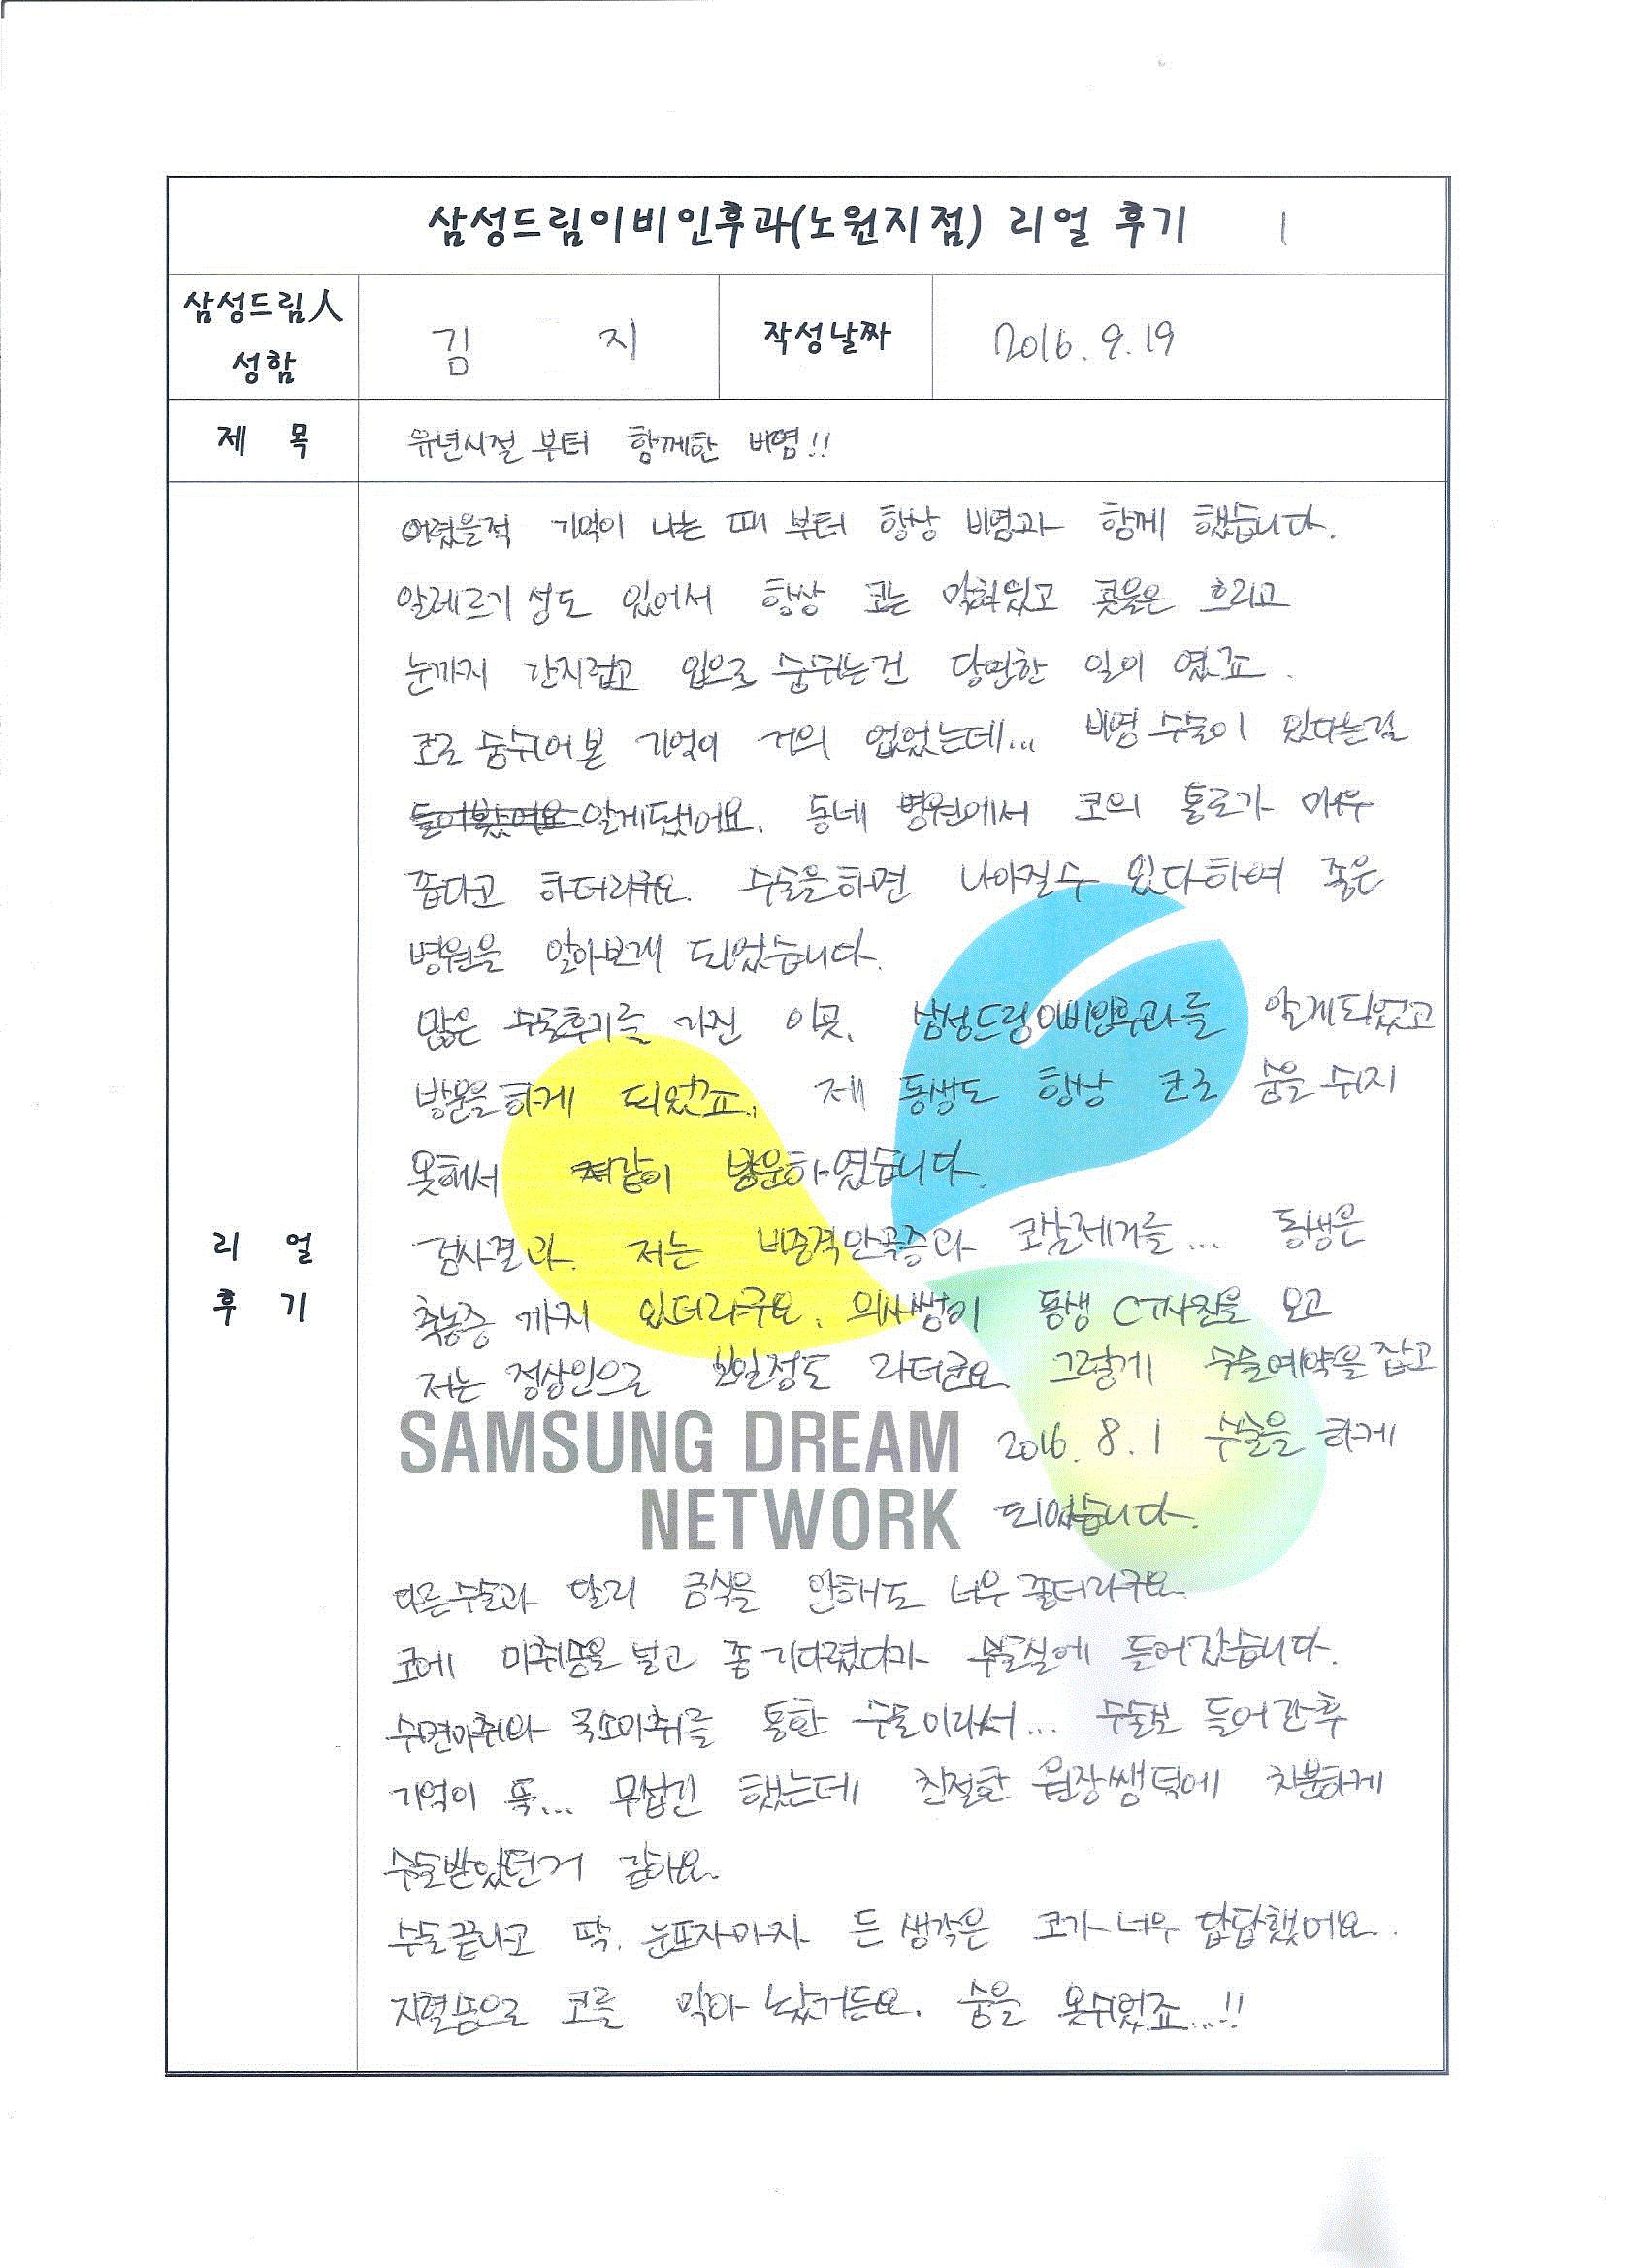 삼성드림이비인후과(노원지점) 리얼 후기 1
삼성드림人
성함
김 지
작성날짜
2016. 9. 19
제 목
유년시절 부터 함께한 비염!!
리 얼
후 기
어렸을적 기억이 나는 때 부터 항상 비염과 함께 했습니다.
알레르기성도 있어서 항상 코는 막혀있고 콧물은 흐리고
눈까지 간지럽고 입으로 숨쉬는건 당연한 일이 였죠.
코로 숨쉬어본 기억이 거의 없었는데... 비염 수술이 있다는걸
들어봤어요 알게됐어요. 동네 병원에서 코의 통로가 매우
좁다고 하더라구요. 수술을하면 나아질수 있다하여 좋은
병원을 알아보게 되었습니다.
많은 수술후기를 가진 이곳. 삼성드림이비인후과를 알게되었고
방문을하게 되었죠. 제 동생도 항상 코로 숨을 쉬지
못해서 같이 방문하였습니다.
검사결과. 저는 비중격만곡증과 코살제거를... 동생은
축농증 까지 있더라구요. 의사쌤이 동생 CT사진을 보고
저는 정상인으로 보일정도 라더군요. 그렇게 수술예약을 잡고
SAMSUNG DREAM
NETWORK
2016. 8. 1 수술을 하게
되었습니다.
다른수술과 달리 금식을 안해도 너무 좋더라구요.
코에 마취솜을 넣고 좀 기다렸다가 수술실에 들어갔습니다.
수면마취와 국소마취를 통한 수술이라서... 수술실 들어간후
기억이 뚝... 무섭긴 했는데 친절한 원장쌤덕에 차분하게
수술받았던거 같아요.
수술끝나고 딱. 눈뜨자마자 든 생각은 코가 너무 답답했어요.
지혈솜으로 코를 막아 놨거든요. 숨을 못쉬었죠...!!